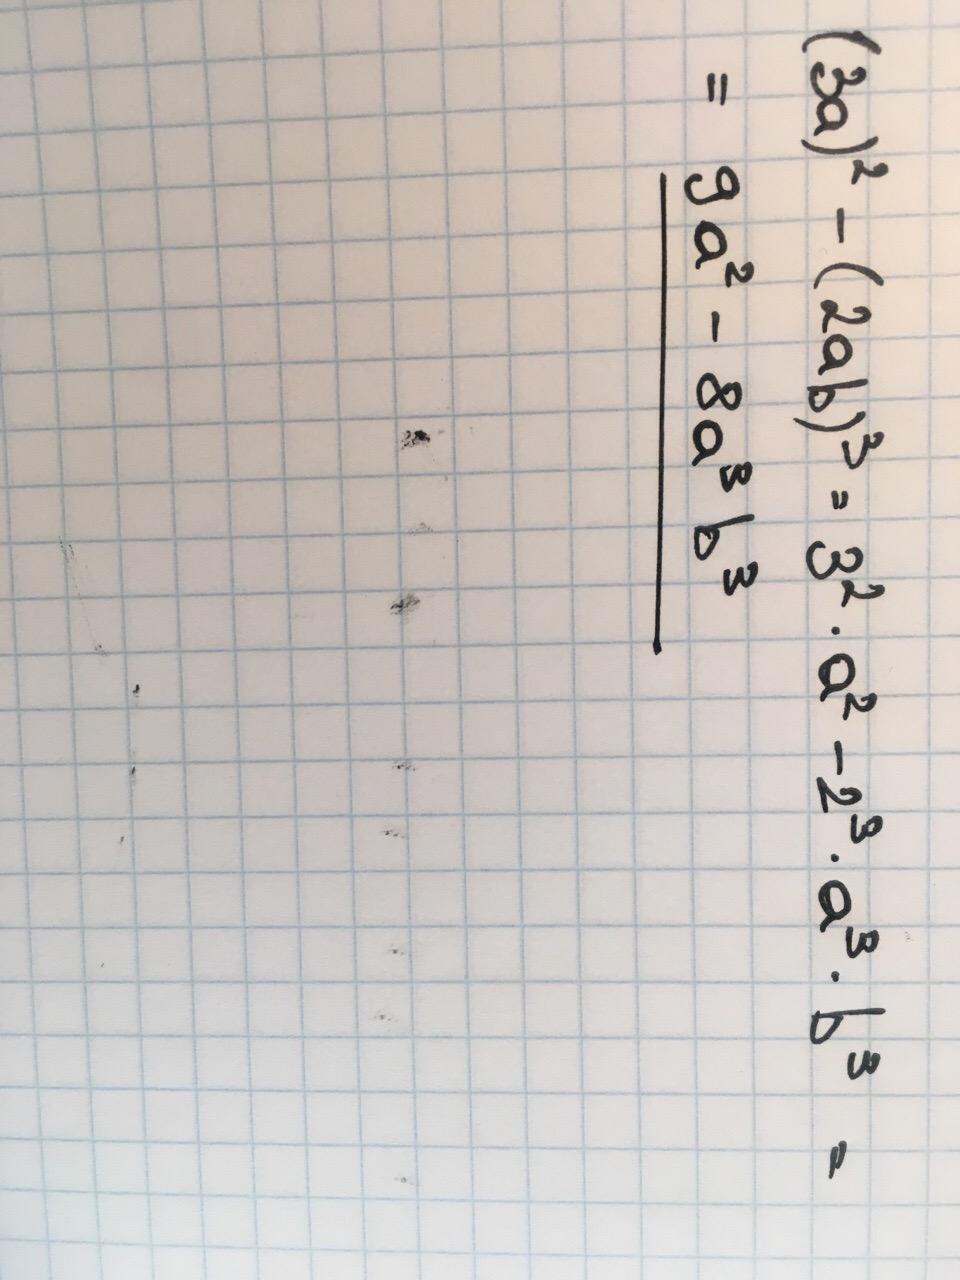 (3a)² - (2ab)³ = 3² · a² - 2³ · a³ · b³ =
= 9a² - 8a³b³